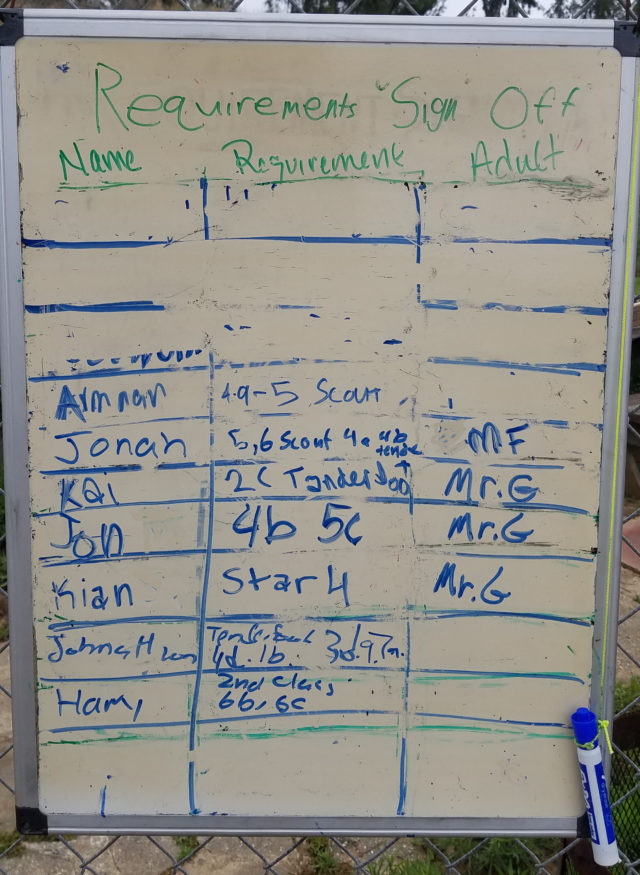 Requirements Sign Off
Name Requirement Adult
Armnan 4a-5 Scout
Jonah 5,6 Scout 4a 4b tende
Kai 2C Tenderfoot Mr.G
MF
Jon 4b 5c Mr.G
Kian Star 4 Mr.G
4d. 1b.
2nd Class
Ham, 6b, 6c